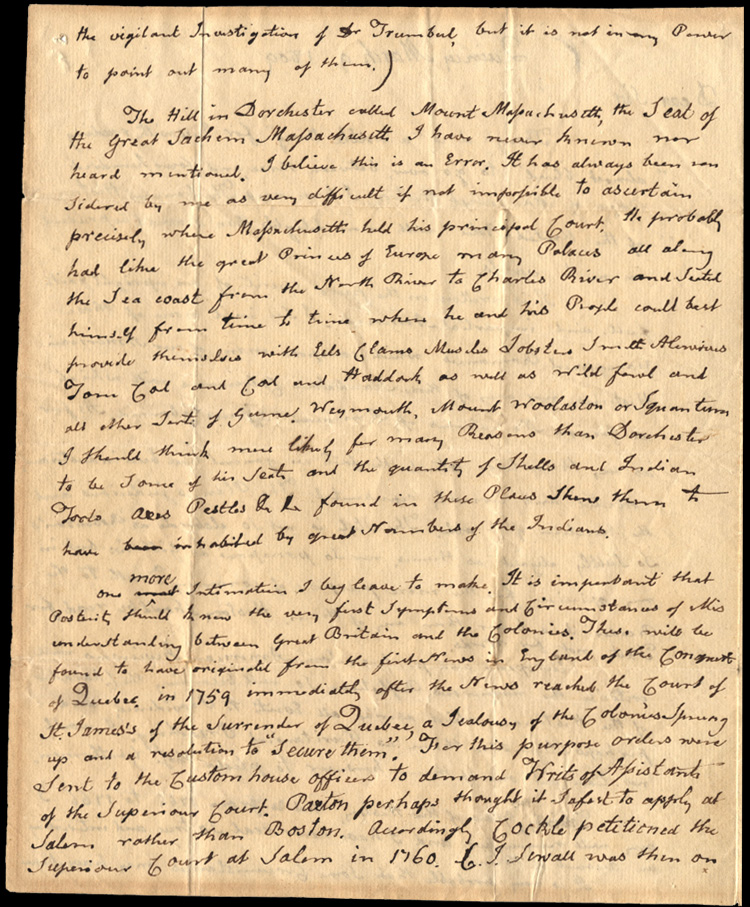 the vigilant Investigation of Dr Trumbul, but it is not in my Power
to point out many of them.)
The Hill in Dorchester called Mount Massachusetts, the Seat of
the Great Sachem Massachusetts I have never known nor
heard mentioned. I believe this is an Error. It has always been con
sidered by me as very difficult if not impossible to ascertain
precisely where Massachusetts held his principal Court. He probably
had like the great Princes of Europe many Palaces all along
the Sea coast from the North River to Charles River and Seated
himself from time to time where he and his People could best
provide themselves with Eels Clams Muscles Lobsters Smelt Alewives
Tom Cod and Cod and Haddock as well as Wild fowl and
all other Sorts of Game. Weymouth, Mount Woolaston or Squantum
I should think more likely for many Reasons than Dorchester
to be Some of his Seats and the quantity of Shells and Indian
Tools Axes Pestles &c &c found in these Places Shew them to
have been inhabited by great Numbers of the Indians.
more
one Intimation I beg leave to make. It is important that
Posterity should know the very first Symptoms and Circumstances of Mis
understanding between Great Britain and the Colonies. These will be
found to have originated from the first News in England of the Conquest
of Quebec, in 1759 immediately after the News reached the Court of
St. James's of the Surrender of Quebec, a Jealousy of the Colonies Sprung
up and a resolution to "Secure them". For this purpose orders were
Sent to the Custom house officers to demand Writs of Assistants
of the Superiour Court. Paxton perhaps thought it Safest to apply at
Salem rather than Boston. Accordingly Cockle petitioned the
Superiour Court at Salem in 1760. C. J. Sewall was then on